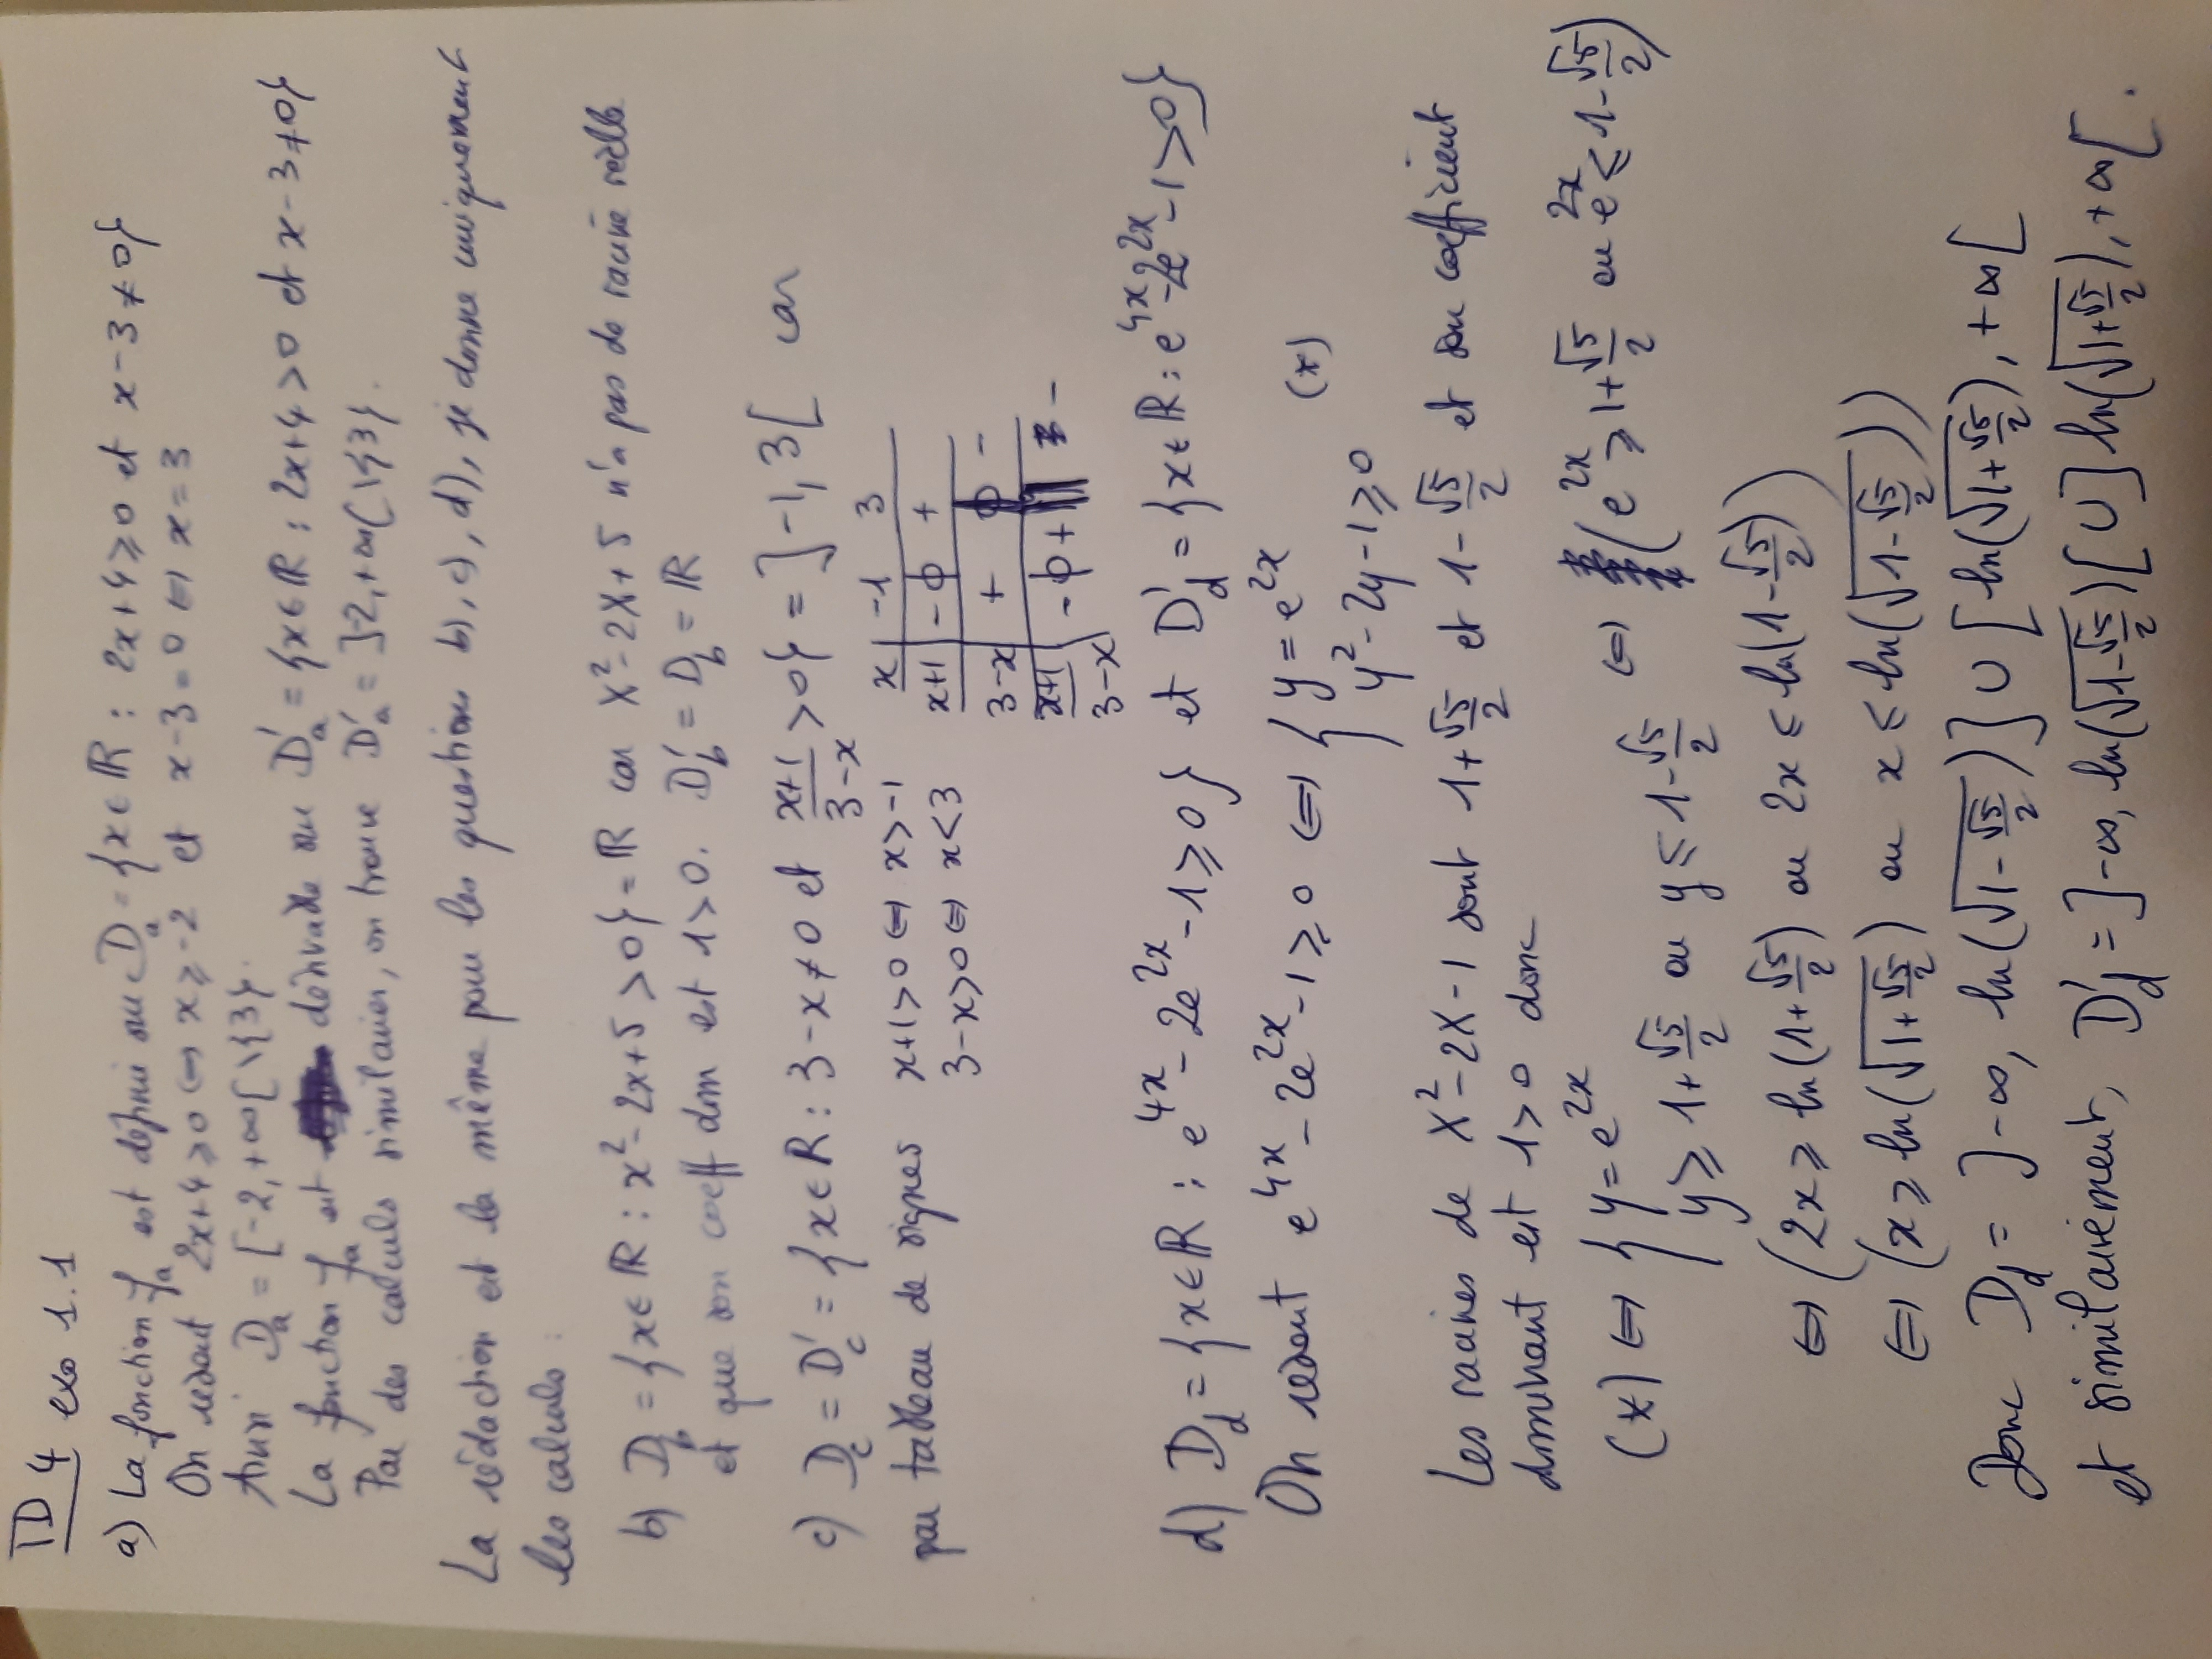 TD 4 exo 1.1
a) La fonction f_a est définie sur D_a = {x ∈ ℝ : 2x+4 ⩾ 0 et x-3 ≠ 0}
On résout 2x+4 ⩾ 0 ⟺ x ⩾ -2 et x-3 = 0 ⟺ x = 3
Ainsi D_a = [-2, +∞[ \ {3}.
La fonction f_a est dérivable sur D'_a = {x ∈ ℝ : 2x+4 > 0 et x-3 ≠ 0}
Par des calculs similaires, on trouve D'_a = ]-2, +∞[ \ {3}.
La rédaction est la même pour les questions b), c), d), je donne uniquement
les calculs :
b) D_b = {x ∈ ℝ : x² - 2x + 5 > 0} = ℝ car X² - 2X + 5 n'a pas de racine réelle
et que son coeff dom est 1 > 0. D'_b = D_b = ℝ
c) D_c = D'_c = {x ∈ ℝ : 3-x ≠ 0 et (x+1)/(3-x) > 0} = ]-1, 3[ car
par tableau de signes x+1 > 0 ⟺ x > -1
3-x > 0 ⟺ x < 3
x | -1 3
x+1 | - 0 + +
3-x | + 0 -
(x+1)/(3-x) | - 0 + || -
d) D_d = {x ∈ ℝ : e^{4x} - 2e^{2x} - 1 ⩾ 0} et D'_d = {x ∈ ℝ : e^{4x} - 2e^{2x} - 1 > 0}
On résout e^{4x} - 2e^{2x} - 1 ⩾ 0 ⟺ { y = e^{2x}
y² - 2y - 1 ⩾ 0 (*)
Les racines de X² - 2X - 1 sont 1 + √5/2 et 1 - √5/2 et son coefficient
dominant est 1 > 0 donc
(*) ⟺ { y = e^{2x}
y ⩾ 1 + √5/2 ou y ⩽ 1 - √5/2 ⟺ (e^{2x} ⩾ 1 + √5/2 ou e^{2x} ⩽ 1 - √5/2)
⟺ (2x ⩾ ln(1 + √5/2) ou 2x ⩽ ln(1 - √5/2))
⟺ (x ⩾ ln(√(1 + √5/2)) ou x ⩽ ln(√(1 - √5/2)))
Donc D_d = ]-∞, ln(√(1 - √5/2))] ∪ [ln(√(1 + √5/2)), +∞[
et similairement, D'_d = ]-∞, ln(√(1 - √5/2))[ ∪ ]ln(√(1 + √5/2)), +∞[.